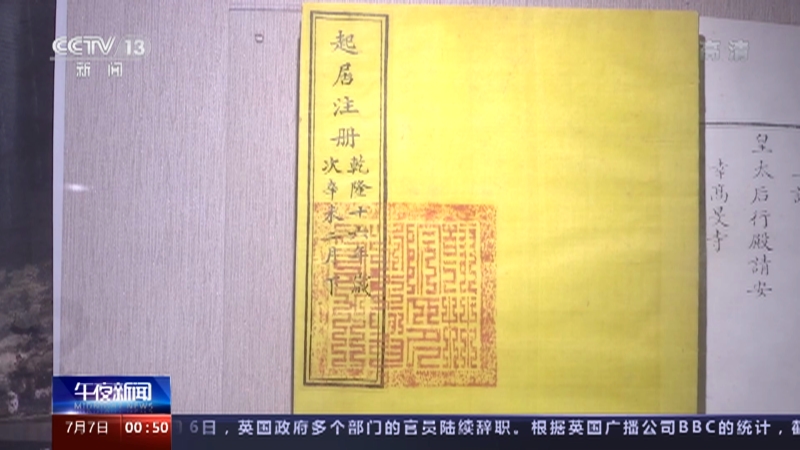 CCTV 13
新闻
高清
起居注册
乾隆十六年歲
次辛未二月下
皇太后行殿請安
幸高旻寺
午夜新闻
MIDNIGHT NEWS
7月7日
00:50
16日，英国政府多个部门的官员陆续辞职。根据英国广播公司BBC的统计，截